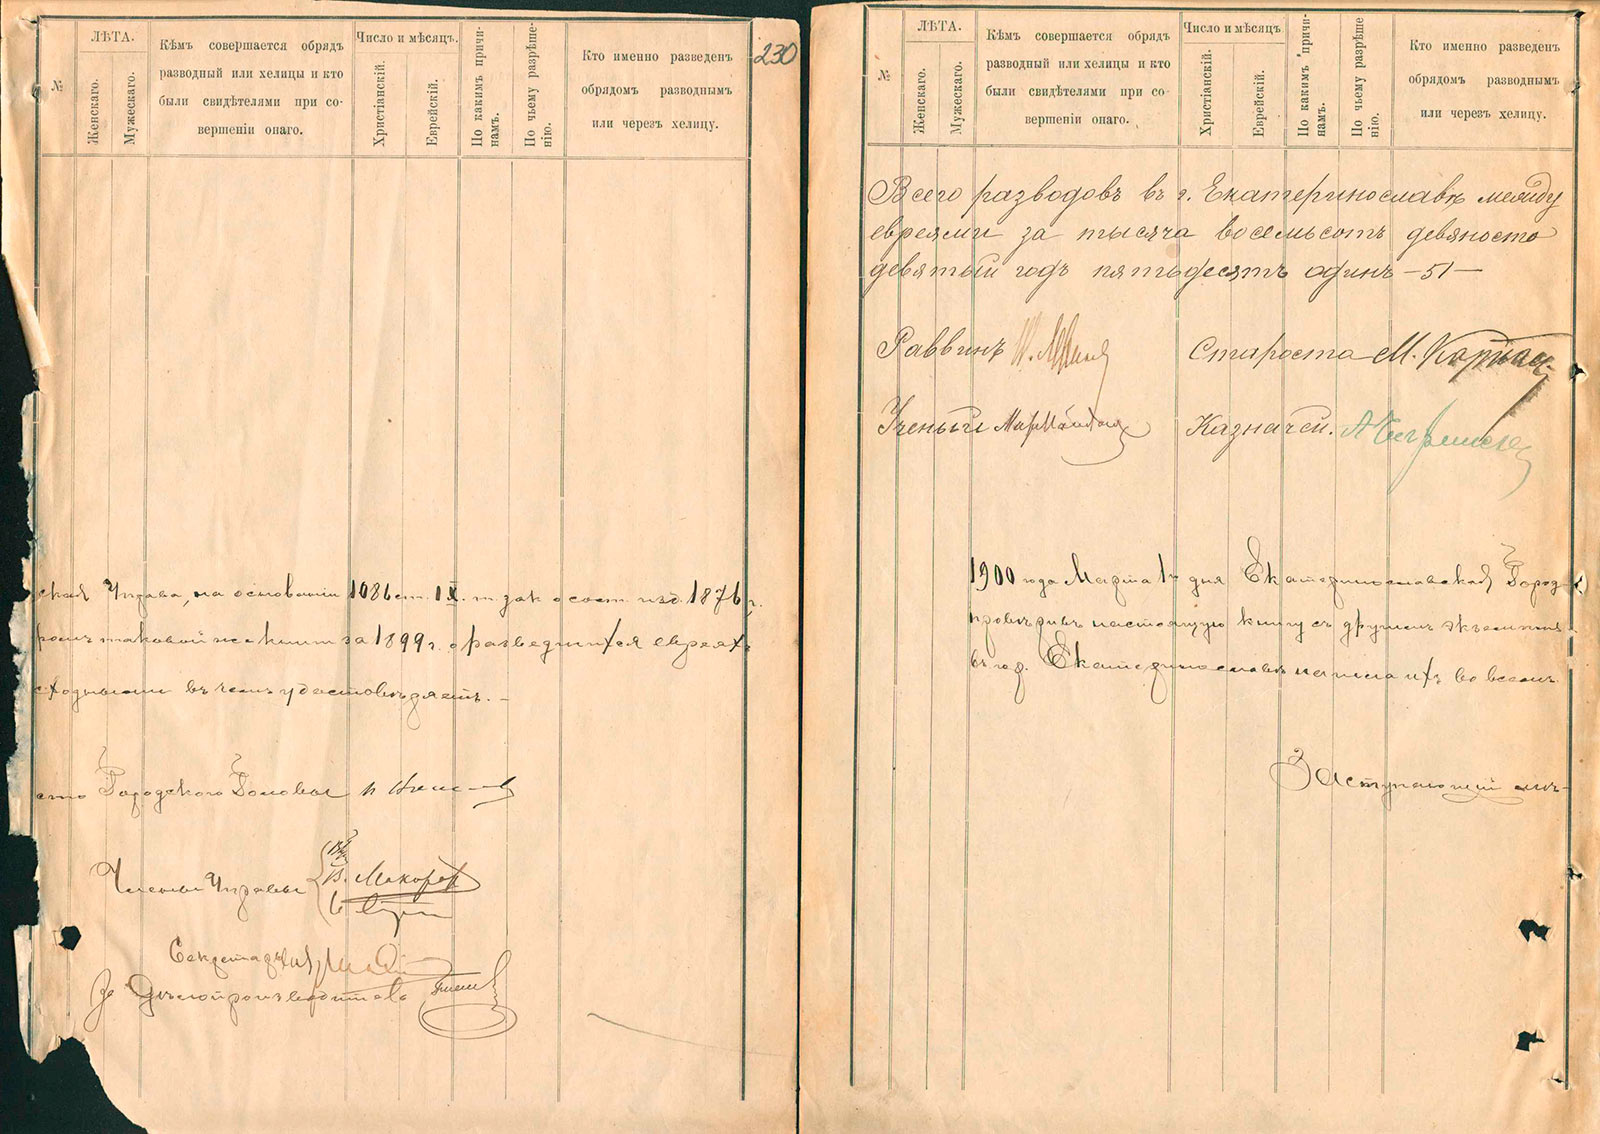 230
№
ЛѢТА.
Женскаго.
Мужескаго.
Кѣмъ совершается обрядъ
разводный или хелицы и кто
были свидѣтелями при со-
вершеніи онаго.
Число и мѣсяцъ.
Христіанскій.
Еврейскій.
По какимъ причи-
намъ.
По чьему разрѣше-
нію.
Кто именно разведенъ
обрядомъ разводнымъ
или черезъ хелицу.
ская Управа, на основаніи 1086 ст. IX т. зак. о сост. изд. 1876 г.
ромъ таковой же книги за 1899 г. о разведшихся евреяхъ
сходными въ чемъ удостовѣряетъ. –
сто Городского Головы
Члены Управы
В. Макаров
Секретарь
За Дѣлопроизводителя
№
ЛѢТА.
Женскаго.
Мужескаго.
Кѣмъ совершается обрядъ
разводный или хелицы и кто
были свидѣтелями при со-
вершеніи онаго.
Число и мѣсяцъ
Христіанскій.
Еврейскій.
По какимъ причи-
намъ.
По чьему разрѣше
нію.
Кто именно разведенъ
обрядомъ разводнымъ
или черезъ хелицу.
Всего разводовъ въ г. Екатеринославѣ между
евреями за тысяча восемьсотъ девяносто
девятый годъ пятьдесятъ одинъ –51–
Раввинъ
Староста М. Карпас
Ученый
Казначей.
1900 года Марта 1 дня Екатеринославская Город-
провѣривъ настоящую книгу съ другимъ экземпля
въ гор. Екатеринославѣ нашла ихъ во всемъ
Заступающій мѣ-